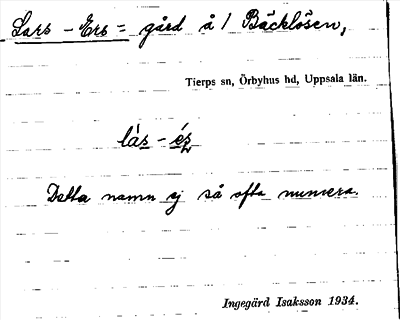 Lars - Ers = gård å 1 Bäcklösen,
Tierps sn, Örbyhus hd, Uppsala län.
làs - éş
Detta namn ej så ofta numera.
Ingegärd Isaksson 1934.